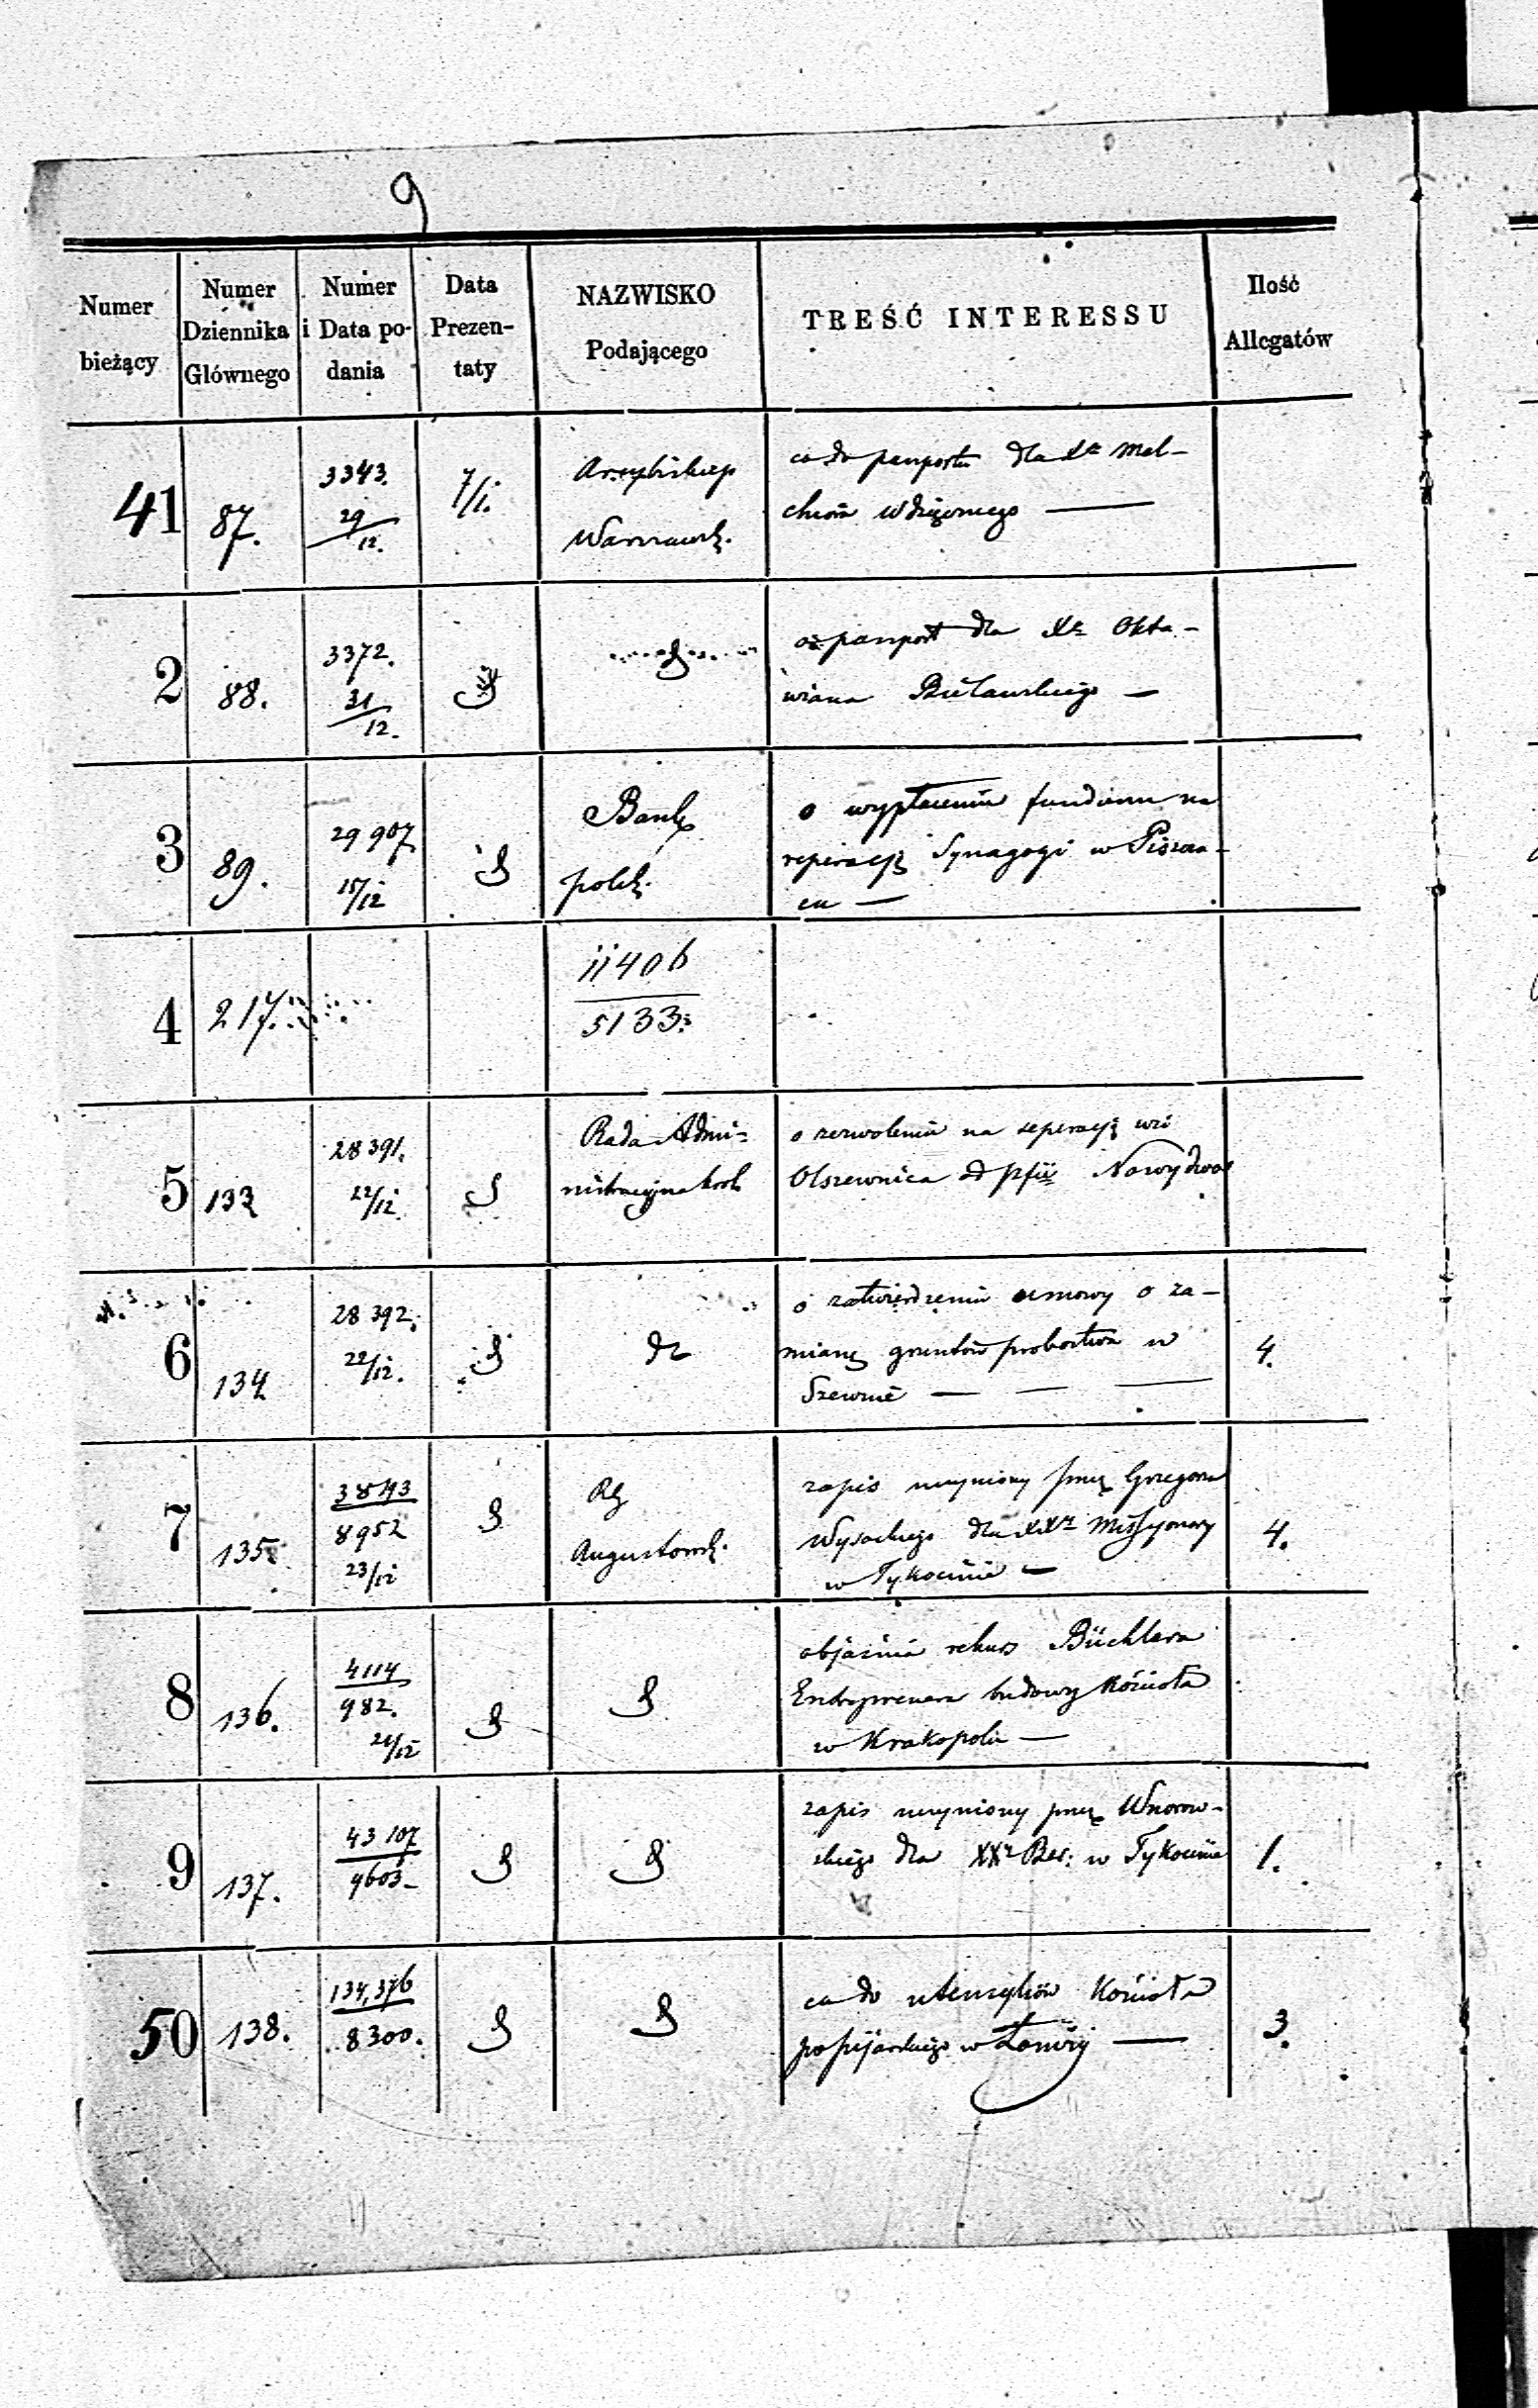 9
Numer bieżący
Numer Dziennika Głównego
Numer i Data podania
Data Prezentaty
NAZWISKO Podającego
TREŚĆ INTERESSU
Ilość Allegatów
41
87.
3343.
29/12.
7/1.
Arcybiskup
Warszawsk.
co do paszportu dla Xa Mel-
chiora
2
88.
3372.
31/12.
o paszport dla Xa Okta-
wiana Bielawskiego —
3
89.
29907
15/12
Bank
polsk.
o wypłacenie funduszu na
reperacyę Synagogi w Piszcza-
cu —
4
217.
11406
5133.
5
133
28391.
22/12
Rada Admi-
nistracyjna Król
o zezwolenie na seperacyę wsi
Olszewnica od pfii Nowydwor
6
134
28392.
22/12.
dt
o zatwierdzenie umowy o za-
mianę gruntów probostwa w
4.
7
135
3843
8952
23/12
RG
Augustowsk.
zapis uczyniony przez Grzegorza
Wysockiego dla XXy Missyonarzy
w Tykocinie —
4.
8
136.
4114
982.
21/12
objaśnia rekurs Büchlera
Entreprenera budowy Kościoła
w Krakopolu —
9
137.
43107
9603-
zapis uczyniony przez Wnorow-
skiego dla XXy Ber: w Tykocinie
1.
50
138.
134,376
8300.
co do utensyliów Kościoła
popijarskiego w Łomży —
3.